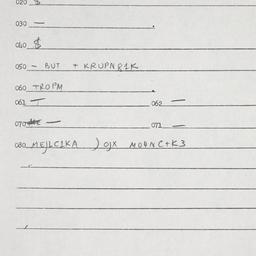 020 $
030 —
040 $
050 — BUT + KRUPNQ1K
060 TROPM
061 — 062 —
070 — 071 —
080 MEJLC1KA ) OJX MO4NC+K3